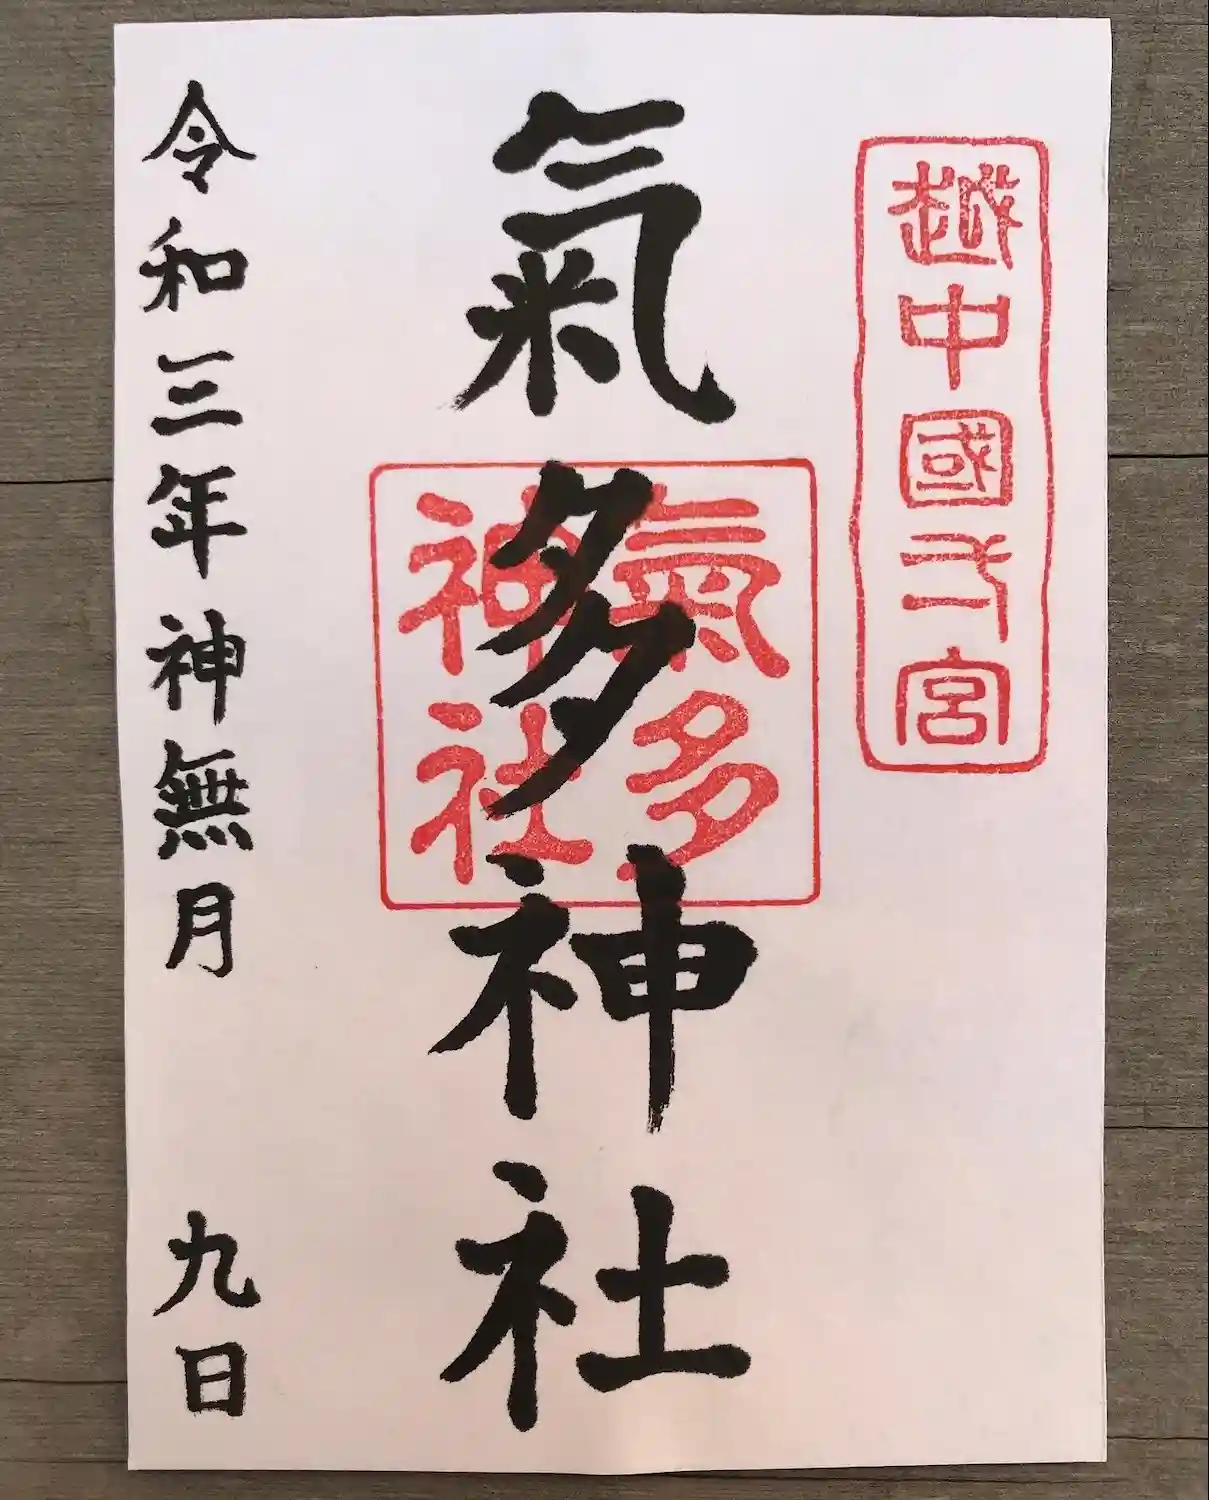 越中國弌宮
氣多神社
氣多
神社
令和三年神無月 九日